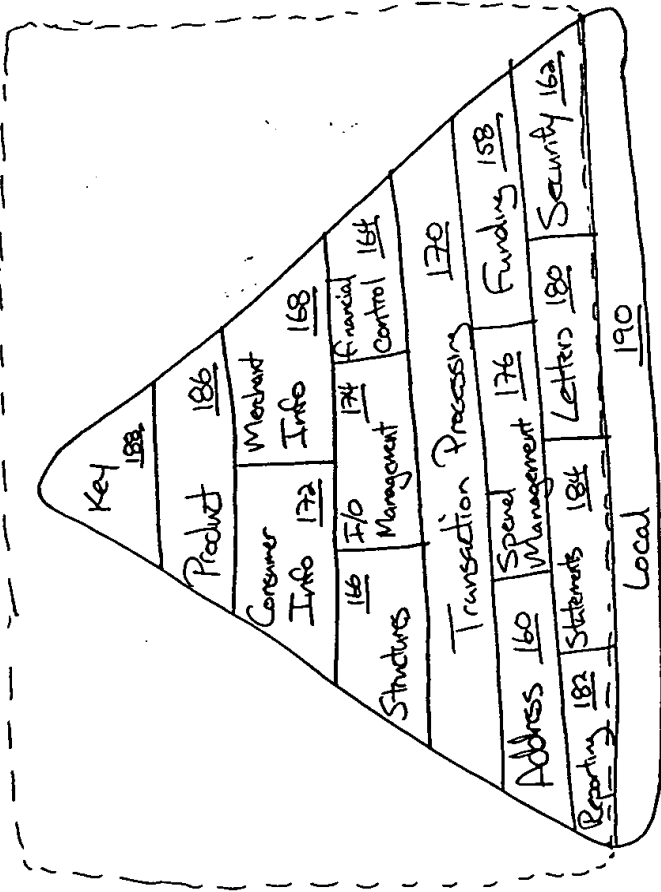 Key
188
Product 186
Consumer
Info 172
Merchant
Info 168
Structures 166
F/O 174
Management
Financial
Control 164
Transaction Processing 170
Address 160
Spend
Management 176
Funding 158
Reporting 182
Statements 184
Letters 180
Security 162
Local 190